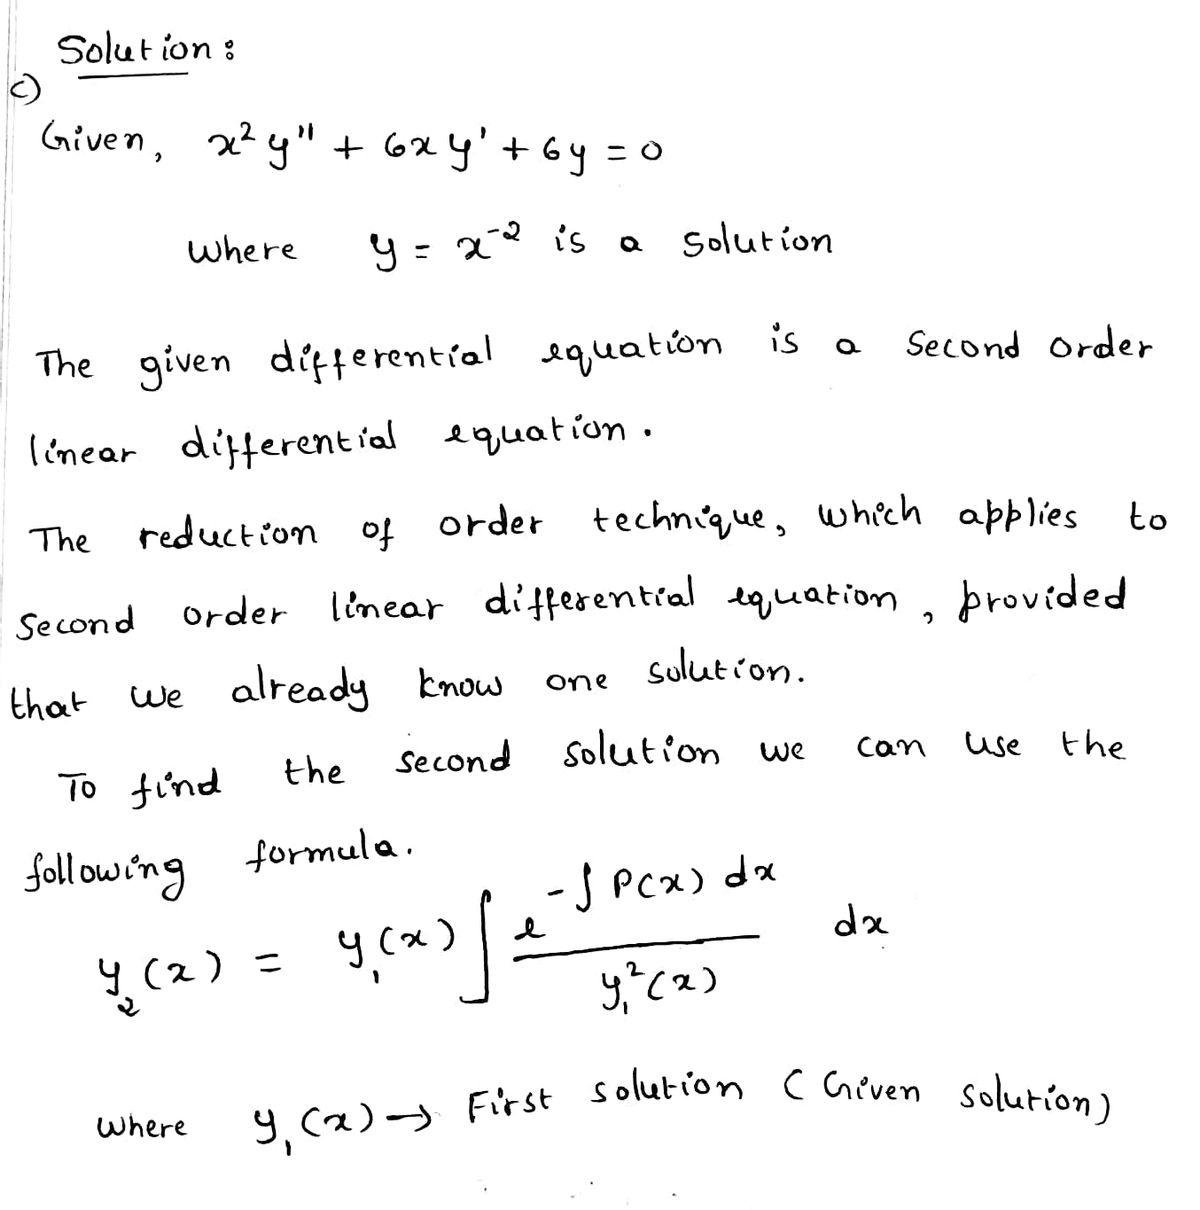 Solution :
c)
Given, x² y'' + 6x y' + 6y = 0
where y = x⁻² is a solution
The given differential equation is a Second order
linear differential equation.
The reduction of order technique, which applies to
Second order linear differential equation, provided
that we already know one solution.
To find the second solution we can use the
following formula.
y₂(x) = y₁(x) ∫ e^(-∫ P(x) dx) / y₁²(x) dx
where y₁(x) → First solution (Given solution)